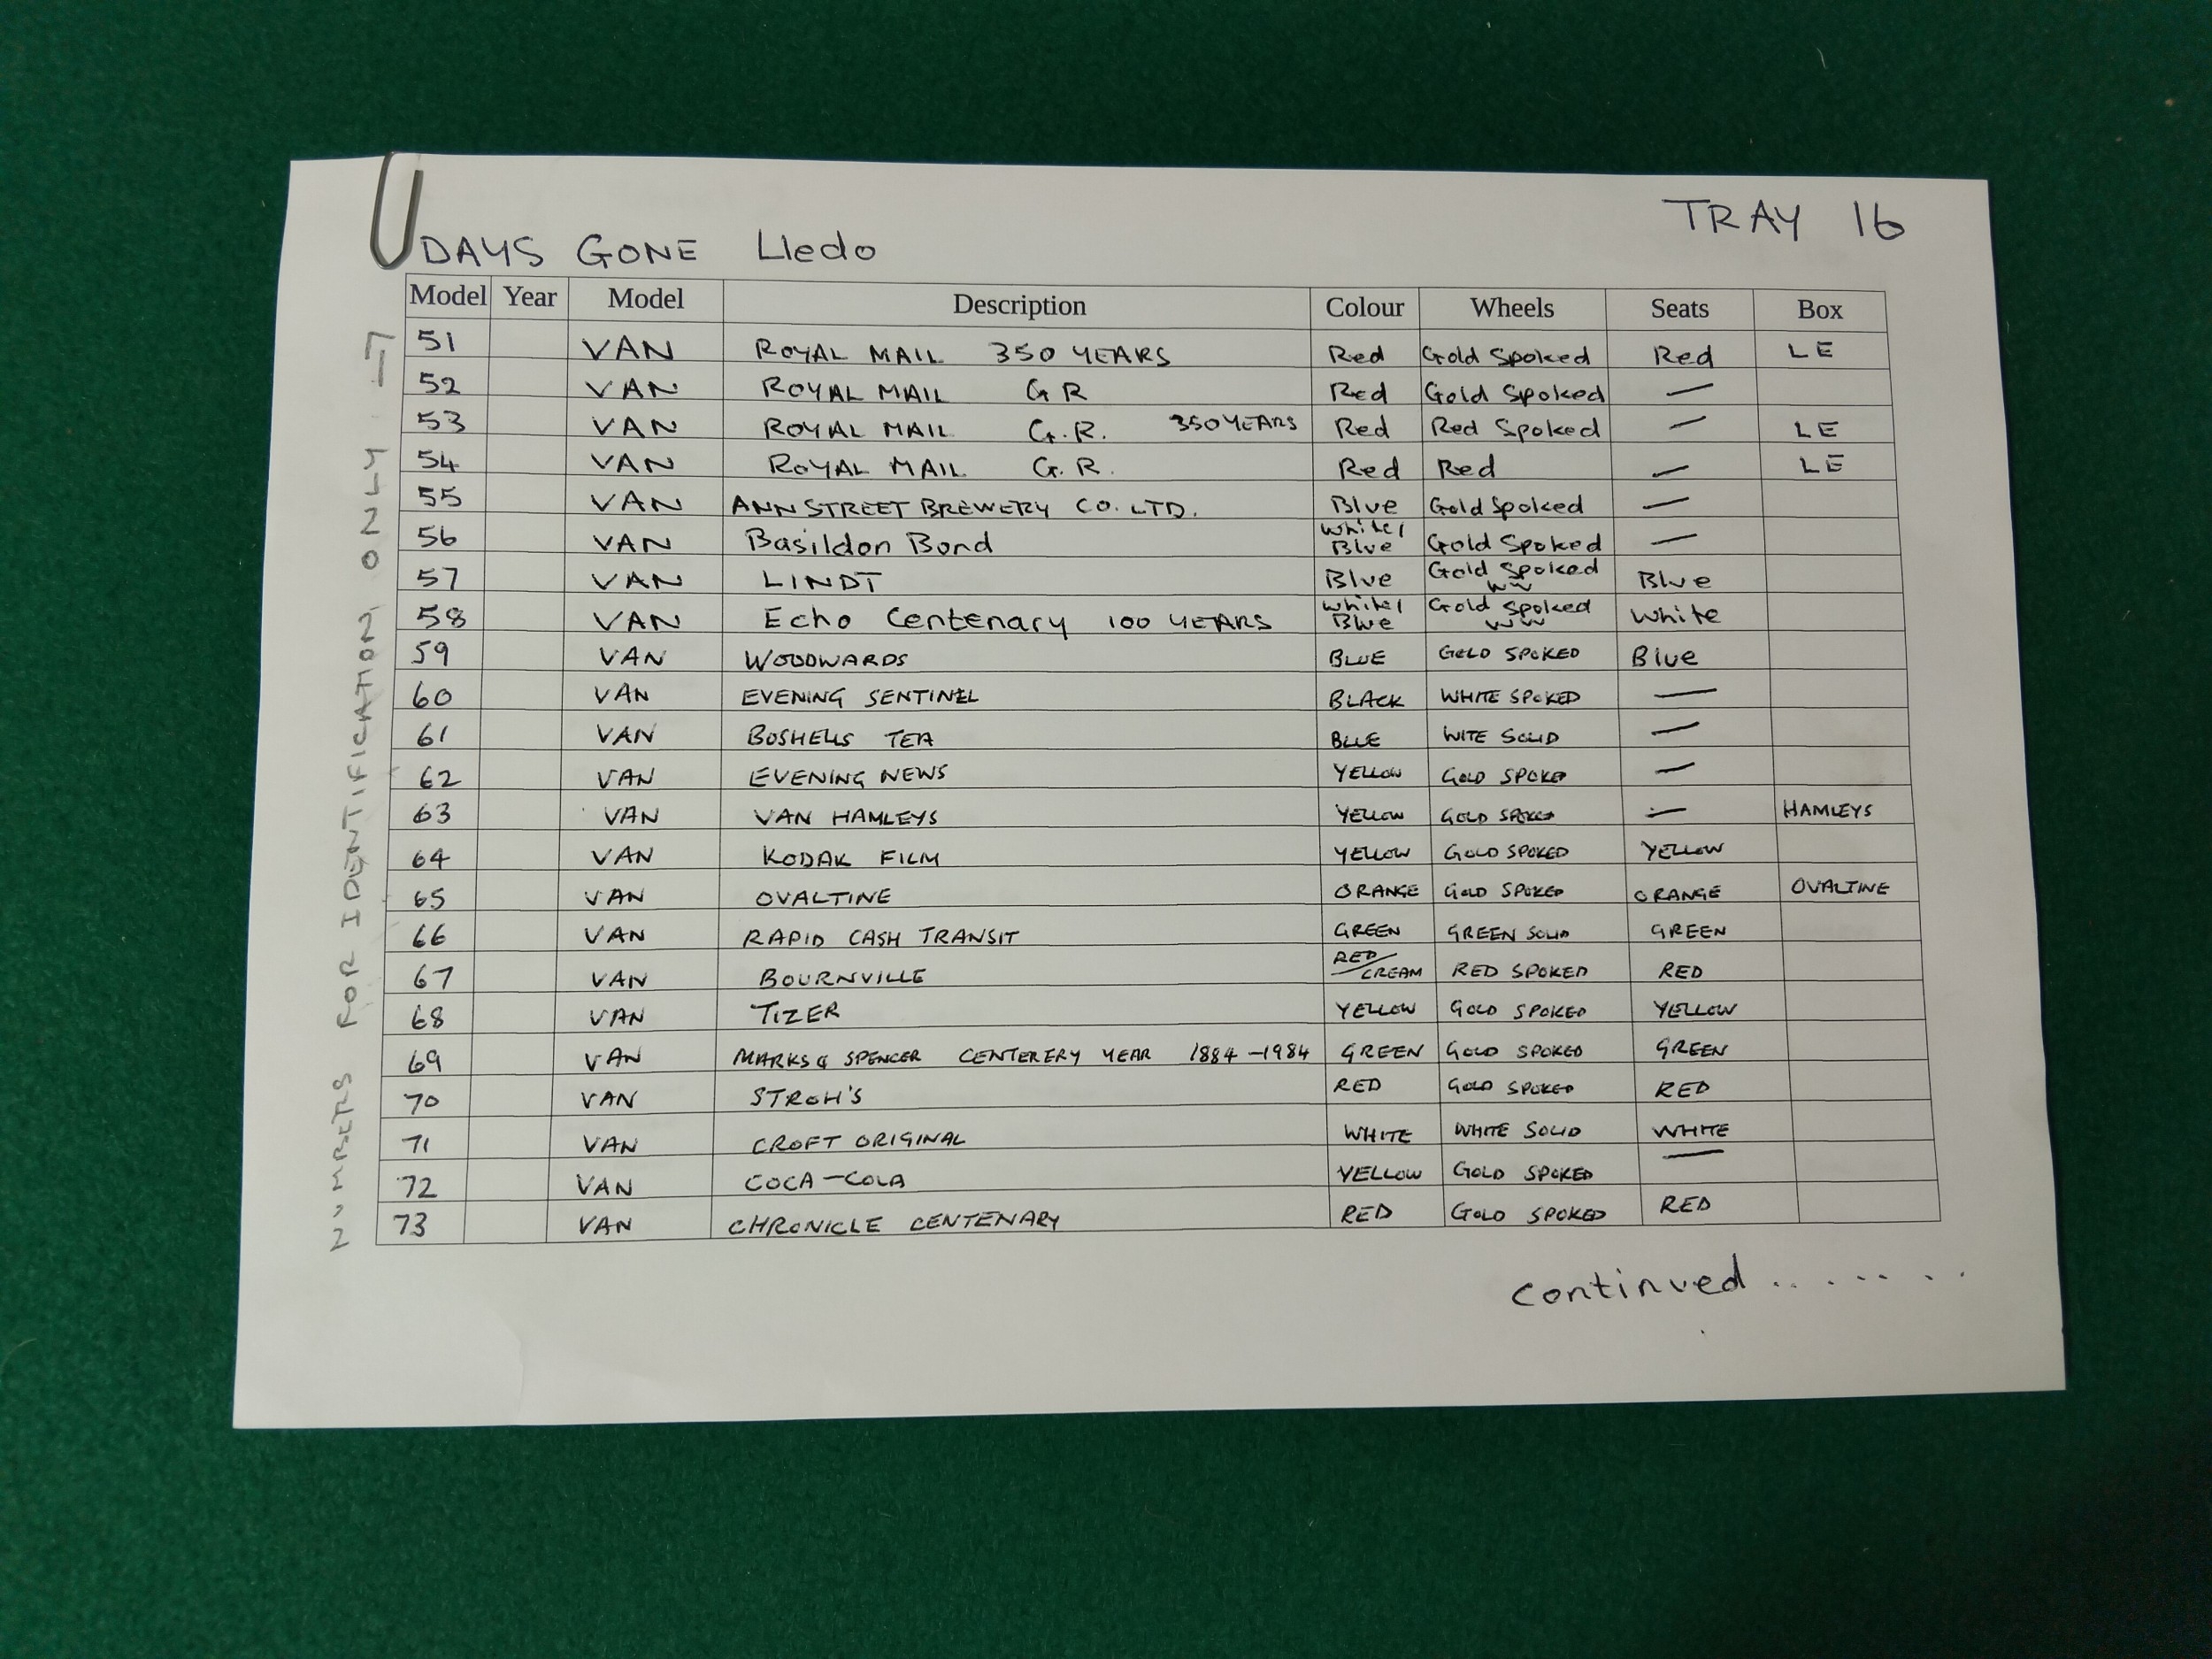 TRAY 16
DAYS GONE Lledo
Model Year Model Description Colour Wheels Seats Box
51 VAN ROYAL MAIL 350 YEARS Red Gold Spoked Red LE
52 VAN ROYAL MAIL GR Red Gold Spoked —
53 VAN ROYAL MAIL G.R. 350 YEARS Red Red Spoked — LE
54 VAN ROYAL MAIL G.R. Red Red — LE
55 VAN ANN STREET BREWERY CO. LTD. Blue Gold Spoked —
56 VAN Basildon Bond White/ Blue Gold Spoked —
57 VAN LINDT Blue Gold Spoked WW Blue
58 VAN Echo Centenary 100 YEARS White/ Blue Gold Spoked WW White
59 VAN WOODWARDS BLUE GOLD SPOKED Blue
60 VAN EVENING SENTINEL BLACK WHITE SPOKED —
61 VAN BUSHELLS TEA BLUE WITE SOLID —
62 VAN EVENING NEWS YELLOW GOLD SPOKED —
63 VAN VAN HAMLEYS YELLOW GOLD SPOKED — HAMLEYS
64 VAN KODAK FILM YELLOW GOLD SPOKED YELLOW
65 VAN OVALTINE ORANGE GOLD SPOKED ORANGE OVALTINE
66 VAN RAPID CASH TRANSIT GREEN GREEN SOLID GREEN
67 VAN BOURNVILLE RED/CREAM RED SPOKED RED
68 VAN TIZER YELLOW GOLD SPOKED YELLOW
69 VAN MARKS & SPENCER CENTERERY YEAR 1884-1984 GREEN GOLD SPOKED GREEN
70 VAN STROH'S RED GOLD SPOKED RED
71 VAN CROFT ORIGINAL WHITE WHITE SOLID WHITE
72 VAN COCA-COLA YELLOW GOLD SPOKED —
73 VAN CHRONICLE CENTENARY RED GOLD SPOKED RED
continued ........
NUMBERS FOR IDENTIFICATION ONLY